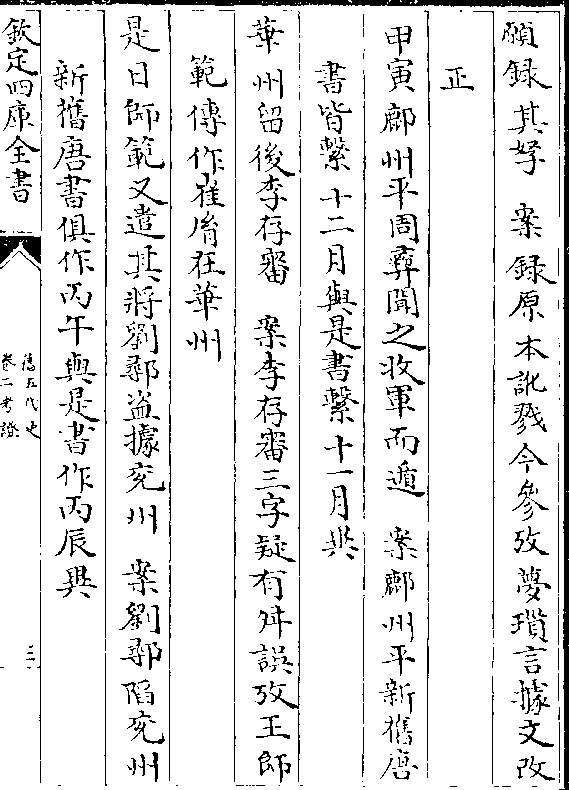 願録其孥　案録原本訛戮今參攷夢瑣言據文改
正
甲寅鄜州平周彝聞之收軍而遁　案鄜州平新舊唐
書皆繫十二月與是書繫十一月異
華州留後李存審　案李存審三字疑有舛誤攷王師
範傳作崔胤在華州
是日師範又遣其將劉鄩盗據兖州　案劉鄩陷兖州
新舊唐書俱作丙午與是書作丙辰異
欽定四庫全書
舊五代史
卷二考證
三